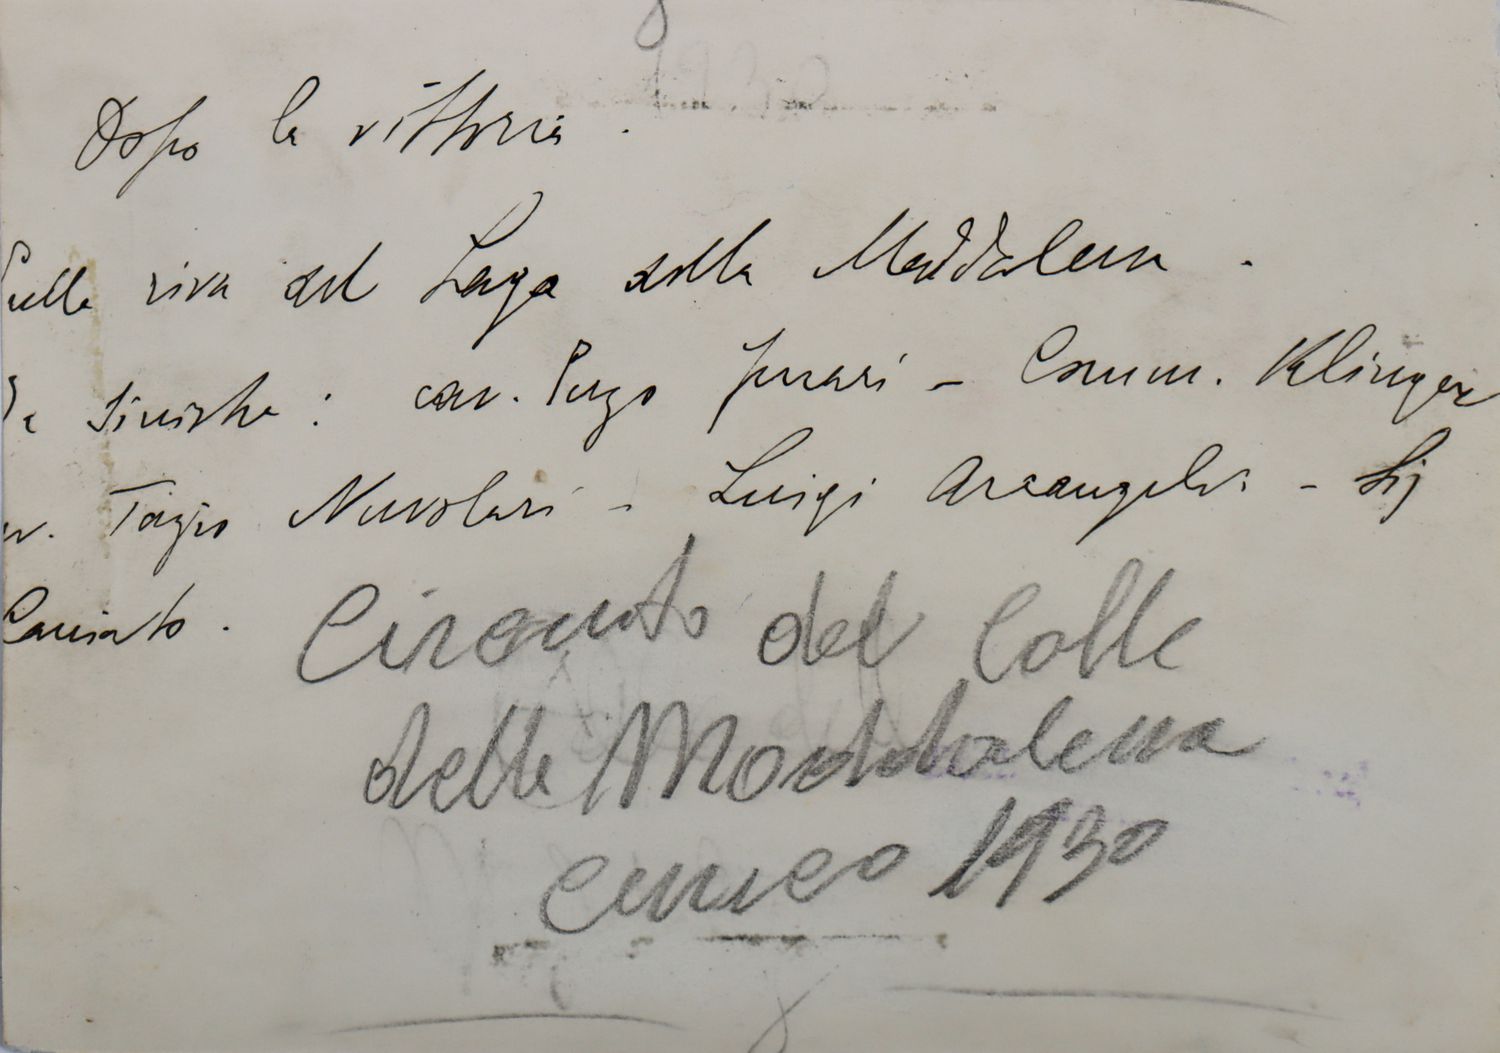 Dopo la vittoria.
Sulla riva del Lago della Maddalena.
Da sinistra: cav. Ferrari - Comm. Klinger
Tazio Nuvolari - Luigi Arcangeli - Sig
Circuito del Colle
della Maddalena
Cuneo 1930